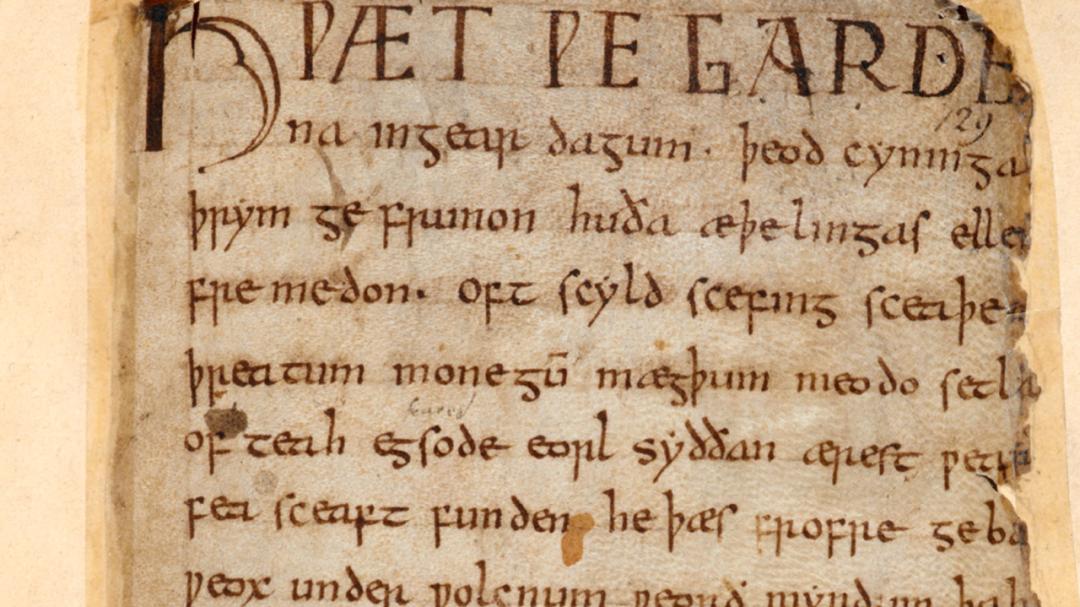 HǷÆT ǷE GARDE
129
na ingear dagum · þeod cyninga
þrym ge frunon huða æþelingas elle
fremedon · oft scyld scefing sceaþe
þreatum monegū mægþum meodo setla
of teah egsode eorl syððan ærest ƿe
fea sceaft funden he þæs frofre geba
ƿeox under ƿolcnum ƿeorð mynd um